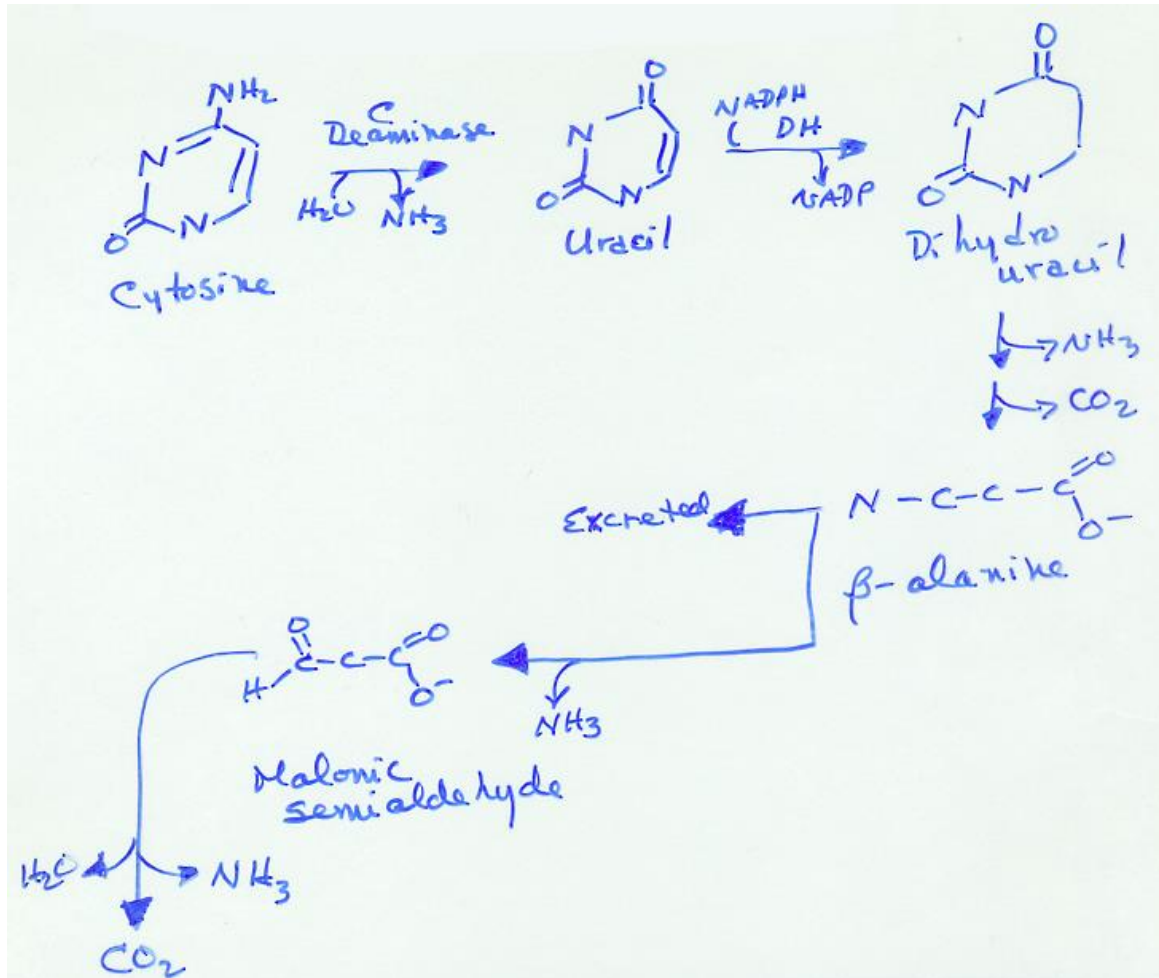 NH2
N
N
O
Cytosine
C
Deaminase
H2O
NH3
O
N
N
O
Uracil
NADPH
DH
NADP
O
N
N
O
Dihydro
uracil
NH3
CO2
N-C-C-C
O
O-
β-alanine
Excreted
NH3
O
H
C-C-C
O
O-
Malonic
semialdehyde
H2O
NH3
CO2